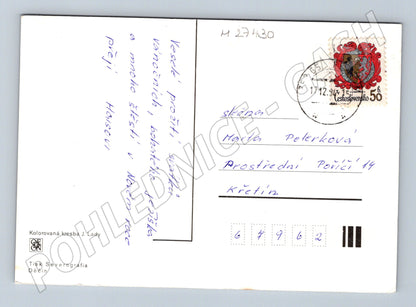 M 27430
Veselé prožití svátků
vánočních, bohatého Ježíška
a mnoho štěstí v Novém roce
přejí Hausovi
Československo 50
17.12.
Marta Peterková
Prostřední Poříčí 14
Křetín
6 7 9 6 2
Kolorovaná kresba J. Lady
Tisk Severografia
Děčín
POHLEDNICE - CASH